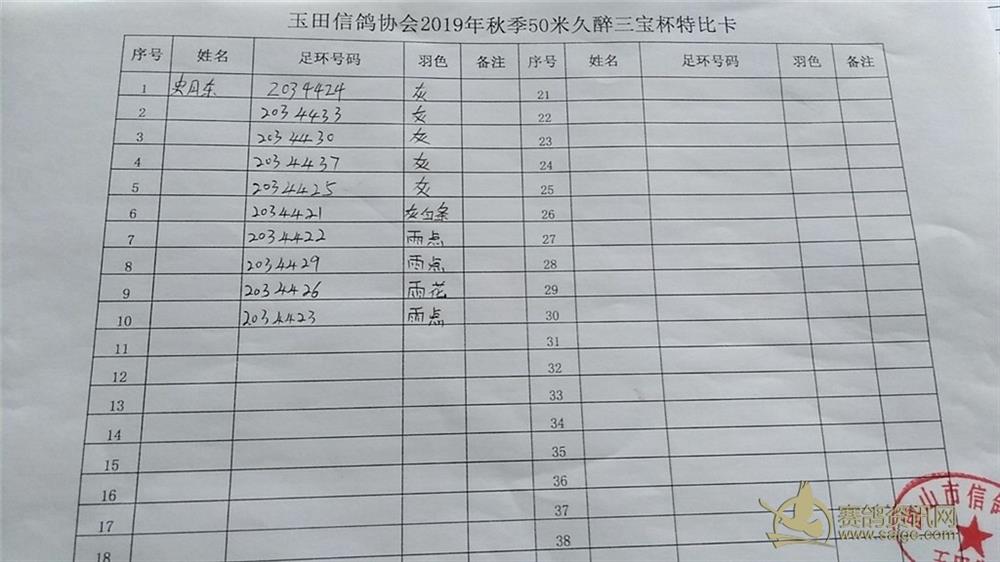 玉田信鸽协会2019年秋季50米久醉三宝杯特比卡
序号 姓名 足环号码 羽色 备注 序号 姓名 足环号码 羽色 备注
1 史月东 2034424 灰 21
2 2034433 灰 22
3 2034430 灰 23
4 2034437 灰 24
5 2034425 灰 25
6 2034421 灰白条 26
7 2034422 雨点 27
8 2034429 雨点 28
9 2034426 雨花 29
10 2034423 雨点 30
11 31
12 32
13 33
14 34
15 35
16 36
17 37
18 38
山市信鸽
玉田
赛鸽资讯网
www.saigc.com